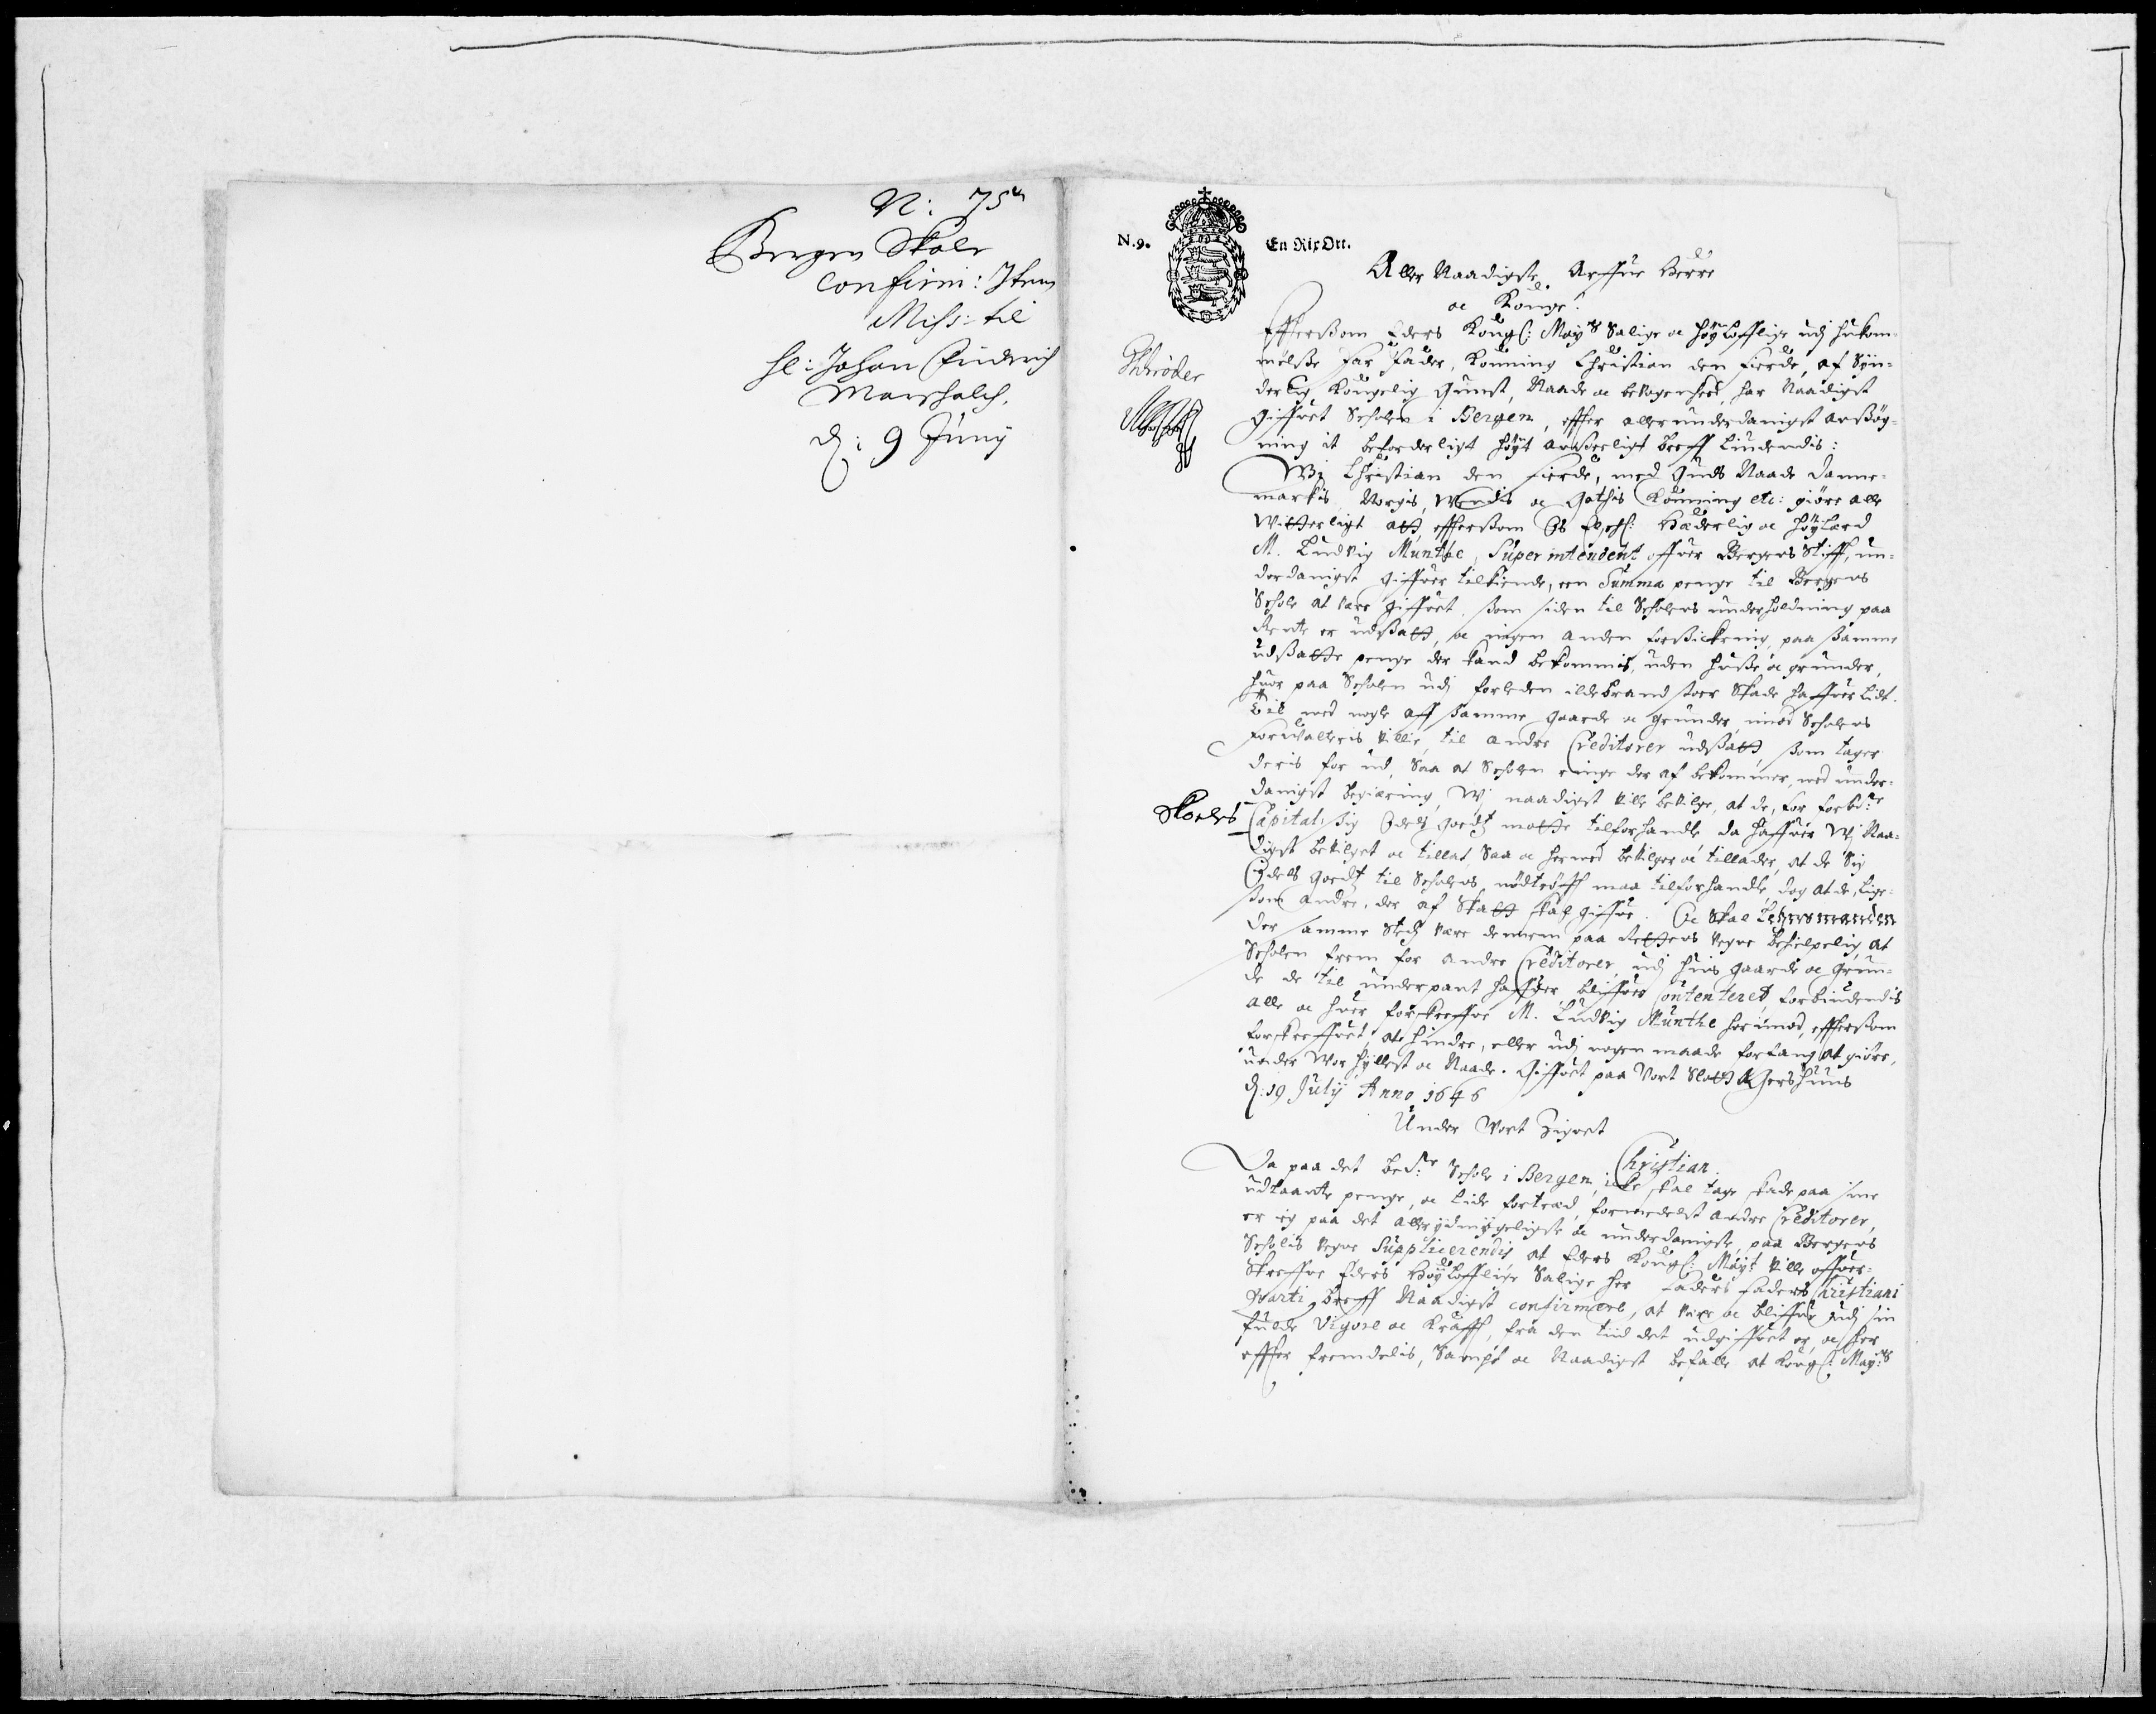 N: 75
Bergen Skole
confirm: Item
Miss: til
hl: Johan Friderich
Marshalch.
d: 9 Juny
N.9. En Rix Ort.
Aller Naadigste Arffue Herre
oc Konge.
Schröder
Effterssom Eders Kongl: Mayts Salige oc høyloflige udj hukom-
melsse Far Fader, Konning Christian den Fierde, af Syn-
derlig Kongelig Gunst, Naade oc bevogenhed, har Naadigst
giffuet Scholen i Bergen, effter allerunderdanigst anssøg-
ning it beforderligt høyt breff liudendis:
Wj Christian den Fierde, med Guds Naade Danne-
markis, Norgis, Wendis oc Gothis Konning etc: giøre alle
Witterligt att, effterssom Os Elschl: Hæderlig oc Høylærd
M. Ludvig Munthe, Superintendent offuer Bergens Stifft, un-
derdanigst giffuer tilkiende, een Summa penge til Bergens
Schole at være giffuet, som siden til Scholens underholdning paa
Rente er udssatt, oc ingen anden forssickring paa ssamme
udssatte penge der kand bekommis, uden husse oc grunder,
huor paa Scholen udj forleden ildebrand stoer Skade haffuer lidt.
Til med nogle aff ssamme gaarde oc grunder, imod Scholens
Forvalteris villie, til andre Creditorer udssatt, som tager
deris for ud, saa at Scholen ringe der af bekommer, med under-
danigst begiæring, Wj naadigst ville bevilge, at de, for forbde:
Skolens
Capital, sig Odels goedtz motte tilforhandle, da haffuer Wj Naa-
digst bevilget oc tillat, saa oc hermed bevilger oc tillader, at de sig
Odels goedtz til Scholens nødtrøfft maa tilforhandle, dog at de, lige-
som andre, der af Skatt skal giffue. Oc skal Lehnsmanden
der samme sted være dennem paa Rettens vegne behielpelig, at
Scholen frem for andre Creditorer, udj huis gaarde oc grun-
de de til underpant haffuer, bliffuer Contenteret, forbiudendis
alle oc huer forskreffne M. Ludvig Munthe herimod, effterssom
forskreffuet, at hindre, eller udj nogen maade forfang at giøre,
under Vor hyllest oc Naade. Giffuet paa Vort Slott Agershuus
d: 19 July Anno 1646
Under Vort Zignet
Christian.
Da paa det bete: Schole i Bergen, icke skal tage skade paa sine
udlaante penge, oc lide fortræd, formedelst andre Creditorer,
er ieg paa det allerydmygeligste oc underdanigste, paa Bergens
Scholis vegne Supplicerendis, at Eders Kongl: Mayt ville offuer-
skreffne Eders Høyloflige Salige Her Faders Faders Christiani
Quarti breff Naadigst confirmere, at være oc bliffue udj sin
fulde Vigore oc Krafft, fra den tiid det udgiffuet er, oc her
effter fremdelis, Sampt oc Naadigst befalle at Kongl: Mayts